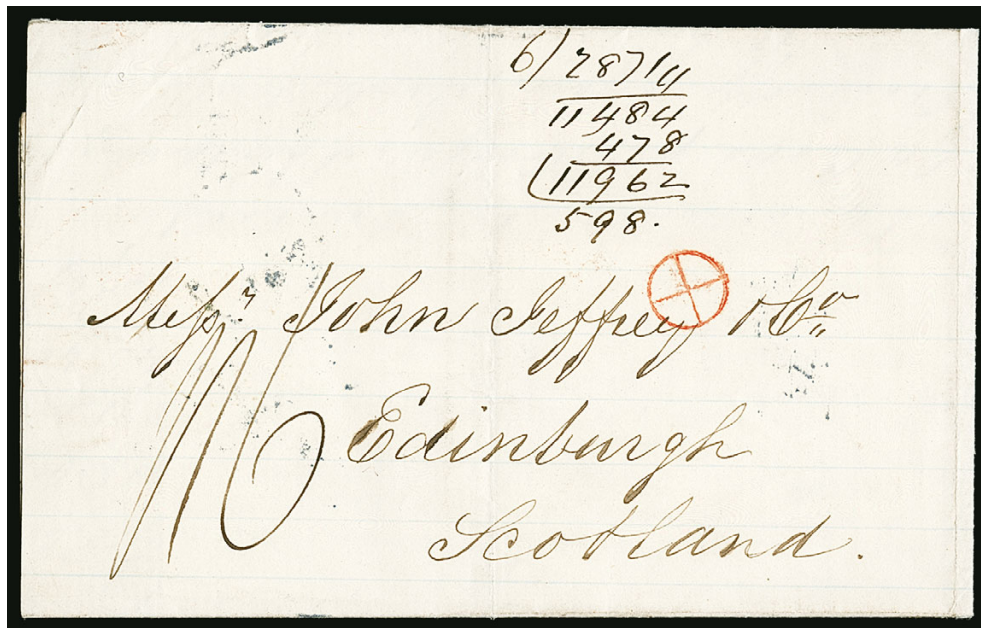 6) 28711
11484
478
(11962
598.
Messrs John Jeffrey & Co
1/6
Edinburgh
Scotland.